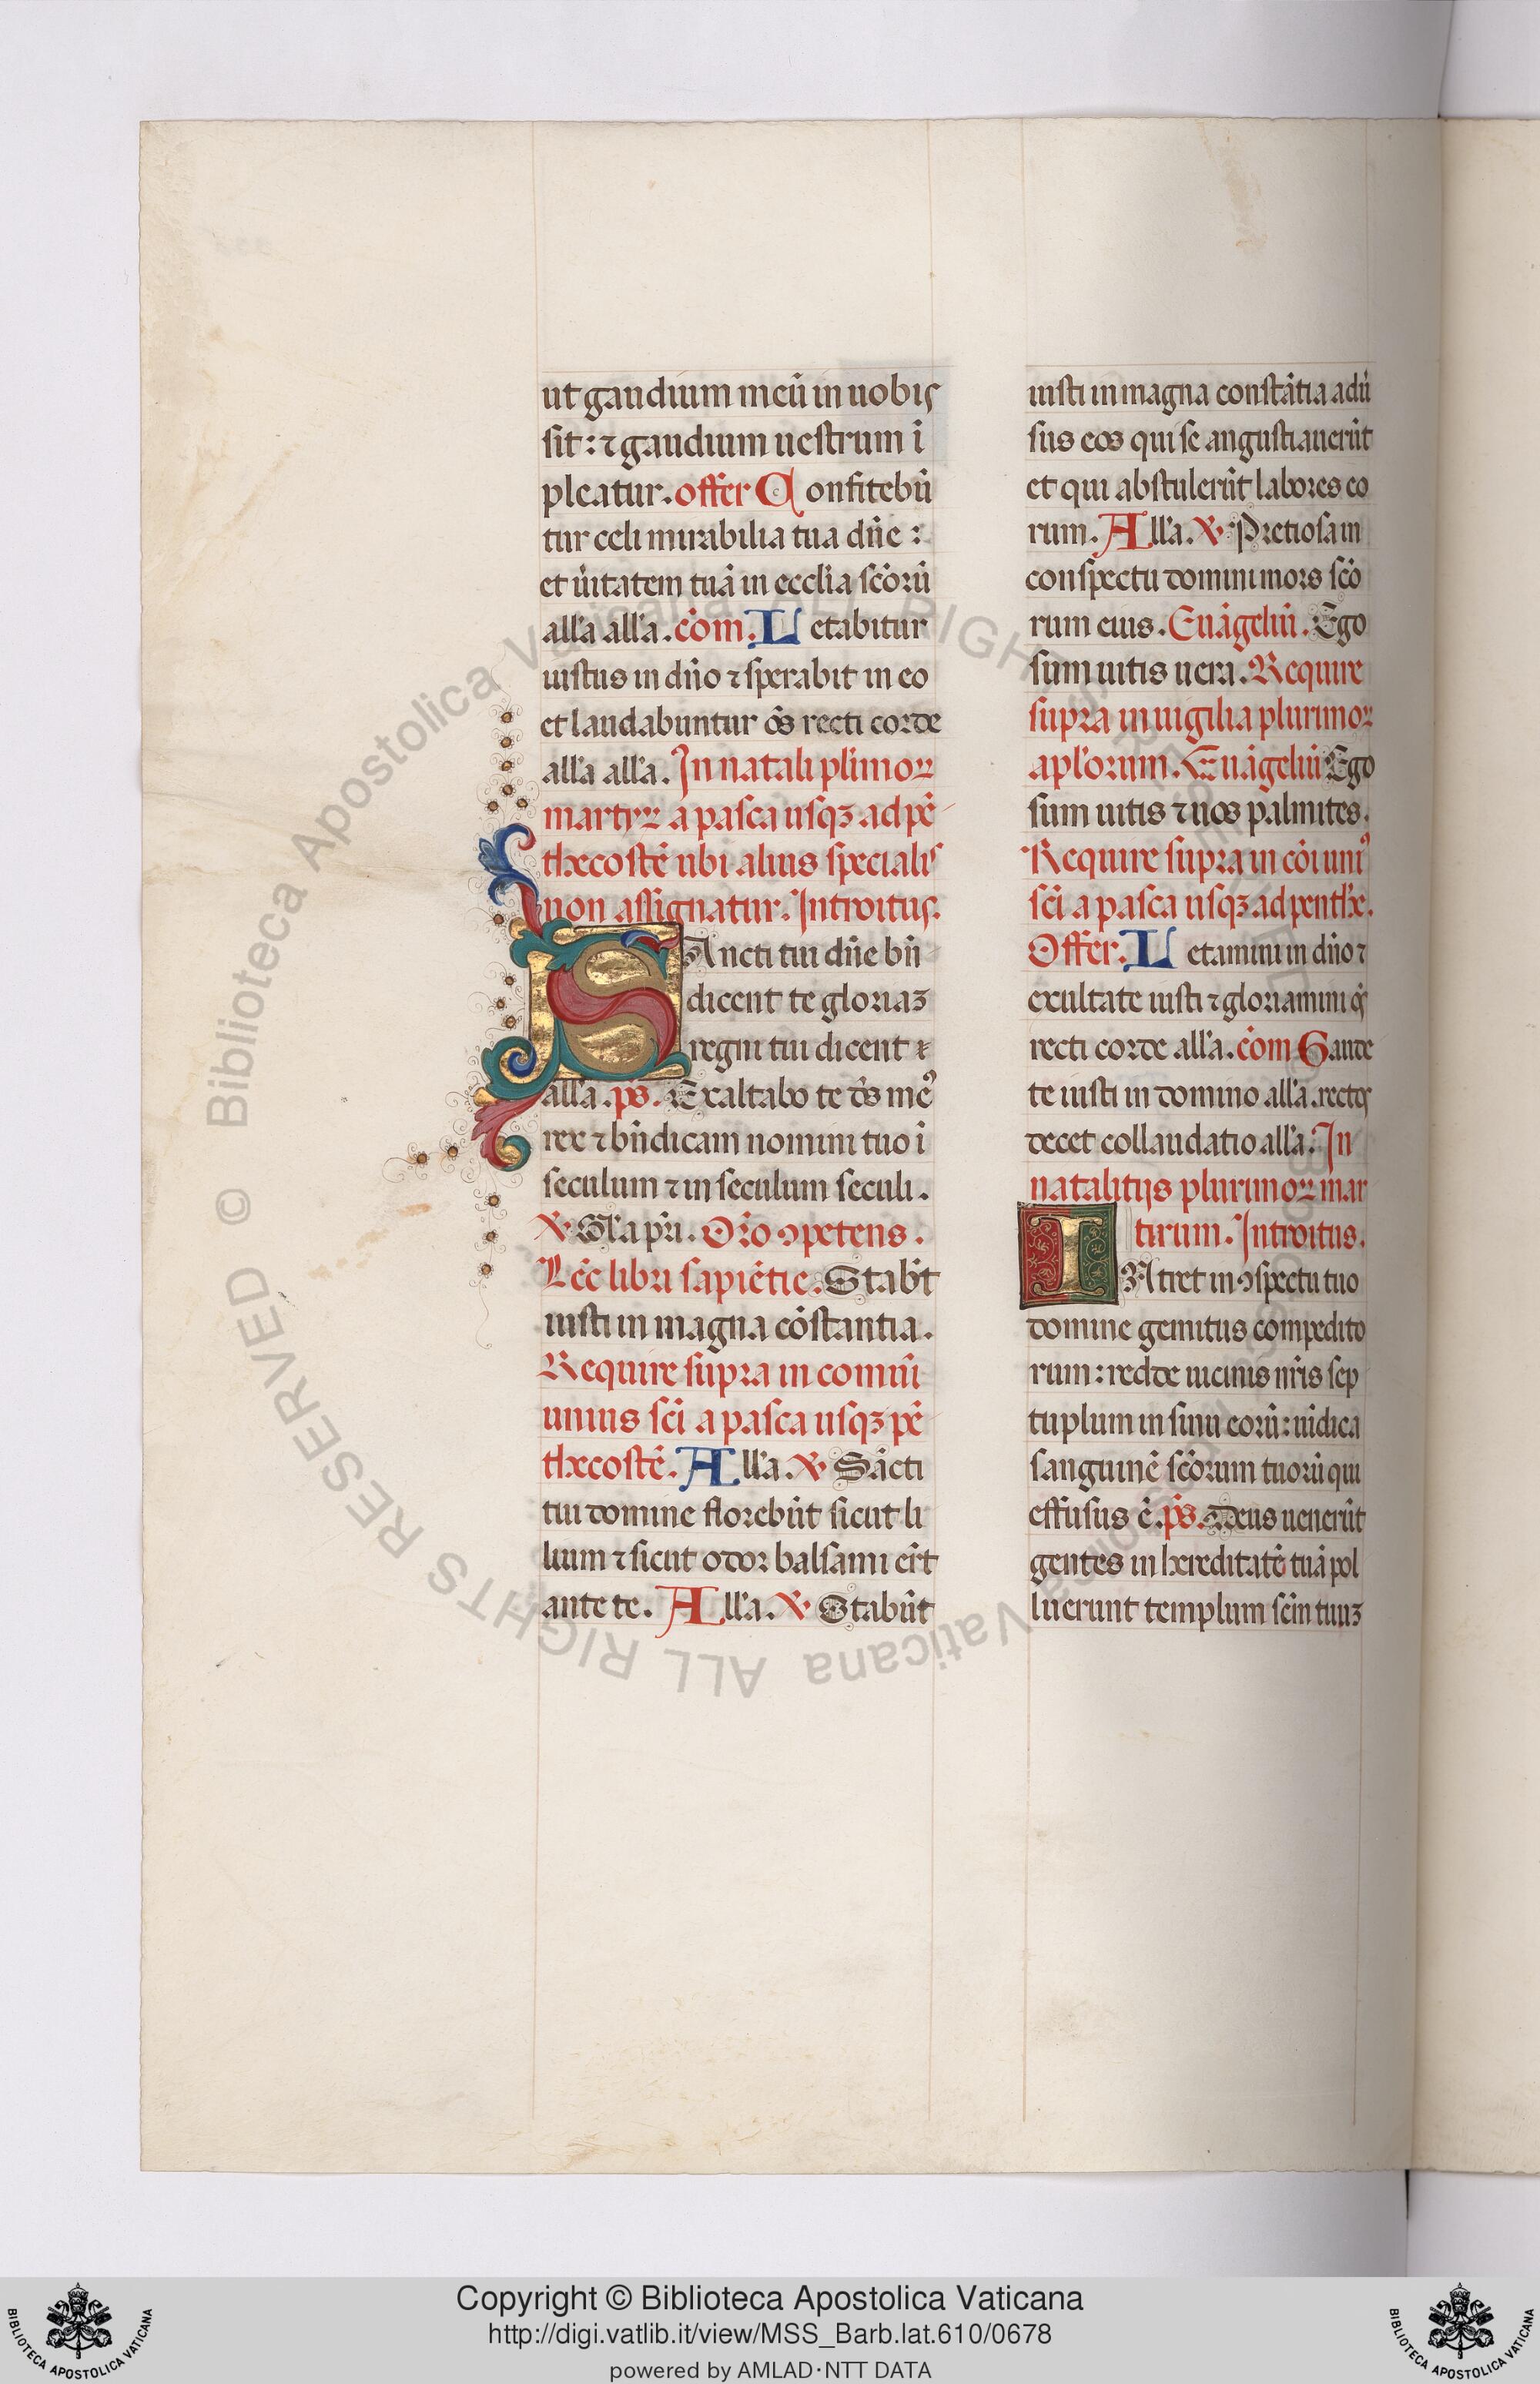 ut gaudium meũ in uobis
sit : ⁊ gaudium uestrum ĩ
pleatur . offer C onfitebũ
tur celi mirabilia tua dñe :
et ũitatem tuã in eccl'ia scõrũ
all'a all'a . cõm . L etabitur
iustus in dño ⁊ sperabit in eo
et laudabuntur õs recti corde
all'a all'a . In natali pl'imoꝝ
martyꝝ a pasca usqꝫ ad pẽ
thecostẽ ubi alius specialis
non assignatur . Introitus .
S Ancti tui dñe bñ
dicent te gloriaꝫ
regni tui dicent
all'a . ps̃ . Exaltabo te ds̃ meꝰ
rex ⁊ bñdicam nomini tuo ĩ
seculum ⁊ in seculum seculi .
℣ . Gl'a pr̃i . Or̃o ꝯpetens .
Lẽc libri sapiẽtie . Stabt̃
iusti in magna cõstantia .
Require supra in comuñi
unius sc̃i a pasca usqꝫ pẽ
thecostẽ . A ll'a . ℣ . Sãcti
tui domine florebũt sicut li
lium ⁊ sicut odor balsami er̃t
ante te . A ll'a . ℣ . Stabũt
iusti in magna constãtia adũ
sus eos qui se angustiauerũt
et qui abstulerũt labores eo
rum . A ll'a . ℣ . Pretiosa in
conspectu domini mors scõ
rum eius . Euãgeliũ . Ego
sum uitis uera . Require
supra in uigilia plurimoꝝ
apl'orum . Euãgeliũ Ego
sum uitis ⁊ uos palmites .
Require supra in cõi uniꝰ
sc̃i a pasca usqꝫ ad penthẽ .
Offer . L etamini in dño ⁊
exultate iusti ⁊ gloriamini
recti corde all'a . cõm Gaude
te iusti in domino all'a . rectos
decet collaudatio all'a . In
natalitijs plurimoꝝ mar
tirum . Introitus .
I Ntret in ꝯspectu tuo
domine gemitus compedito
rum : redde uicinis nr̃is sep
tuplum in sinu eorũ : uĩdica
sanguinẽ scõrum tuorũ qui
effusus ẽ . ps̃ . Deus uenerũt
gentes in hereditatẽ tuã pol
luerunt templum sc̃m tuuꝫ
© Biblioteca Apostolica Vaticana ALL RIGHTS RESERVED
© Biblioteca Apostolica Vaticana ALL RIGHTS RESERVED
Copyright © Biblioteca Apostolica Vaticana
http://digi.vatlib.it/view/MSS_Barb.lat.610/0678
powered by AMLAD·NTT DATA
BIBLIOTECA APOSTOLICA VATICANA
BIBLIOTECA APOSTOLICA VATICANA